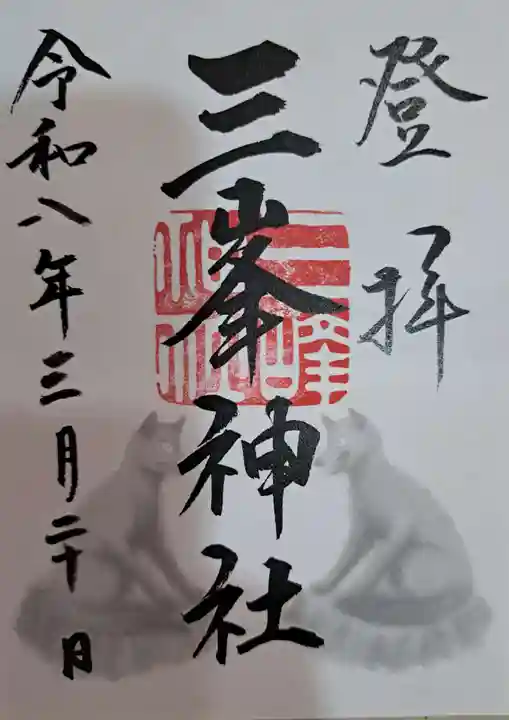 登拝
三峯神社
令和八年三月二十日